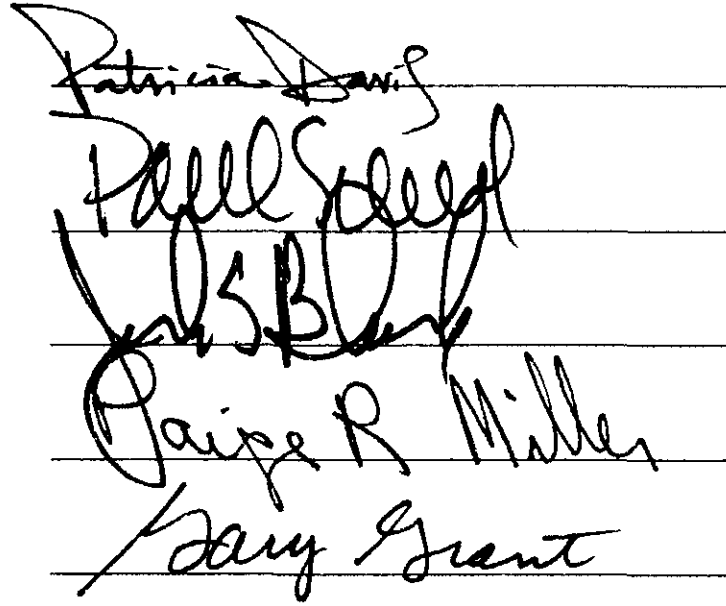 Patricia Davis
Paul
Jack S Block
Paige R Miller
Gary Grant